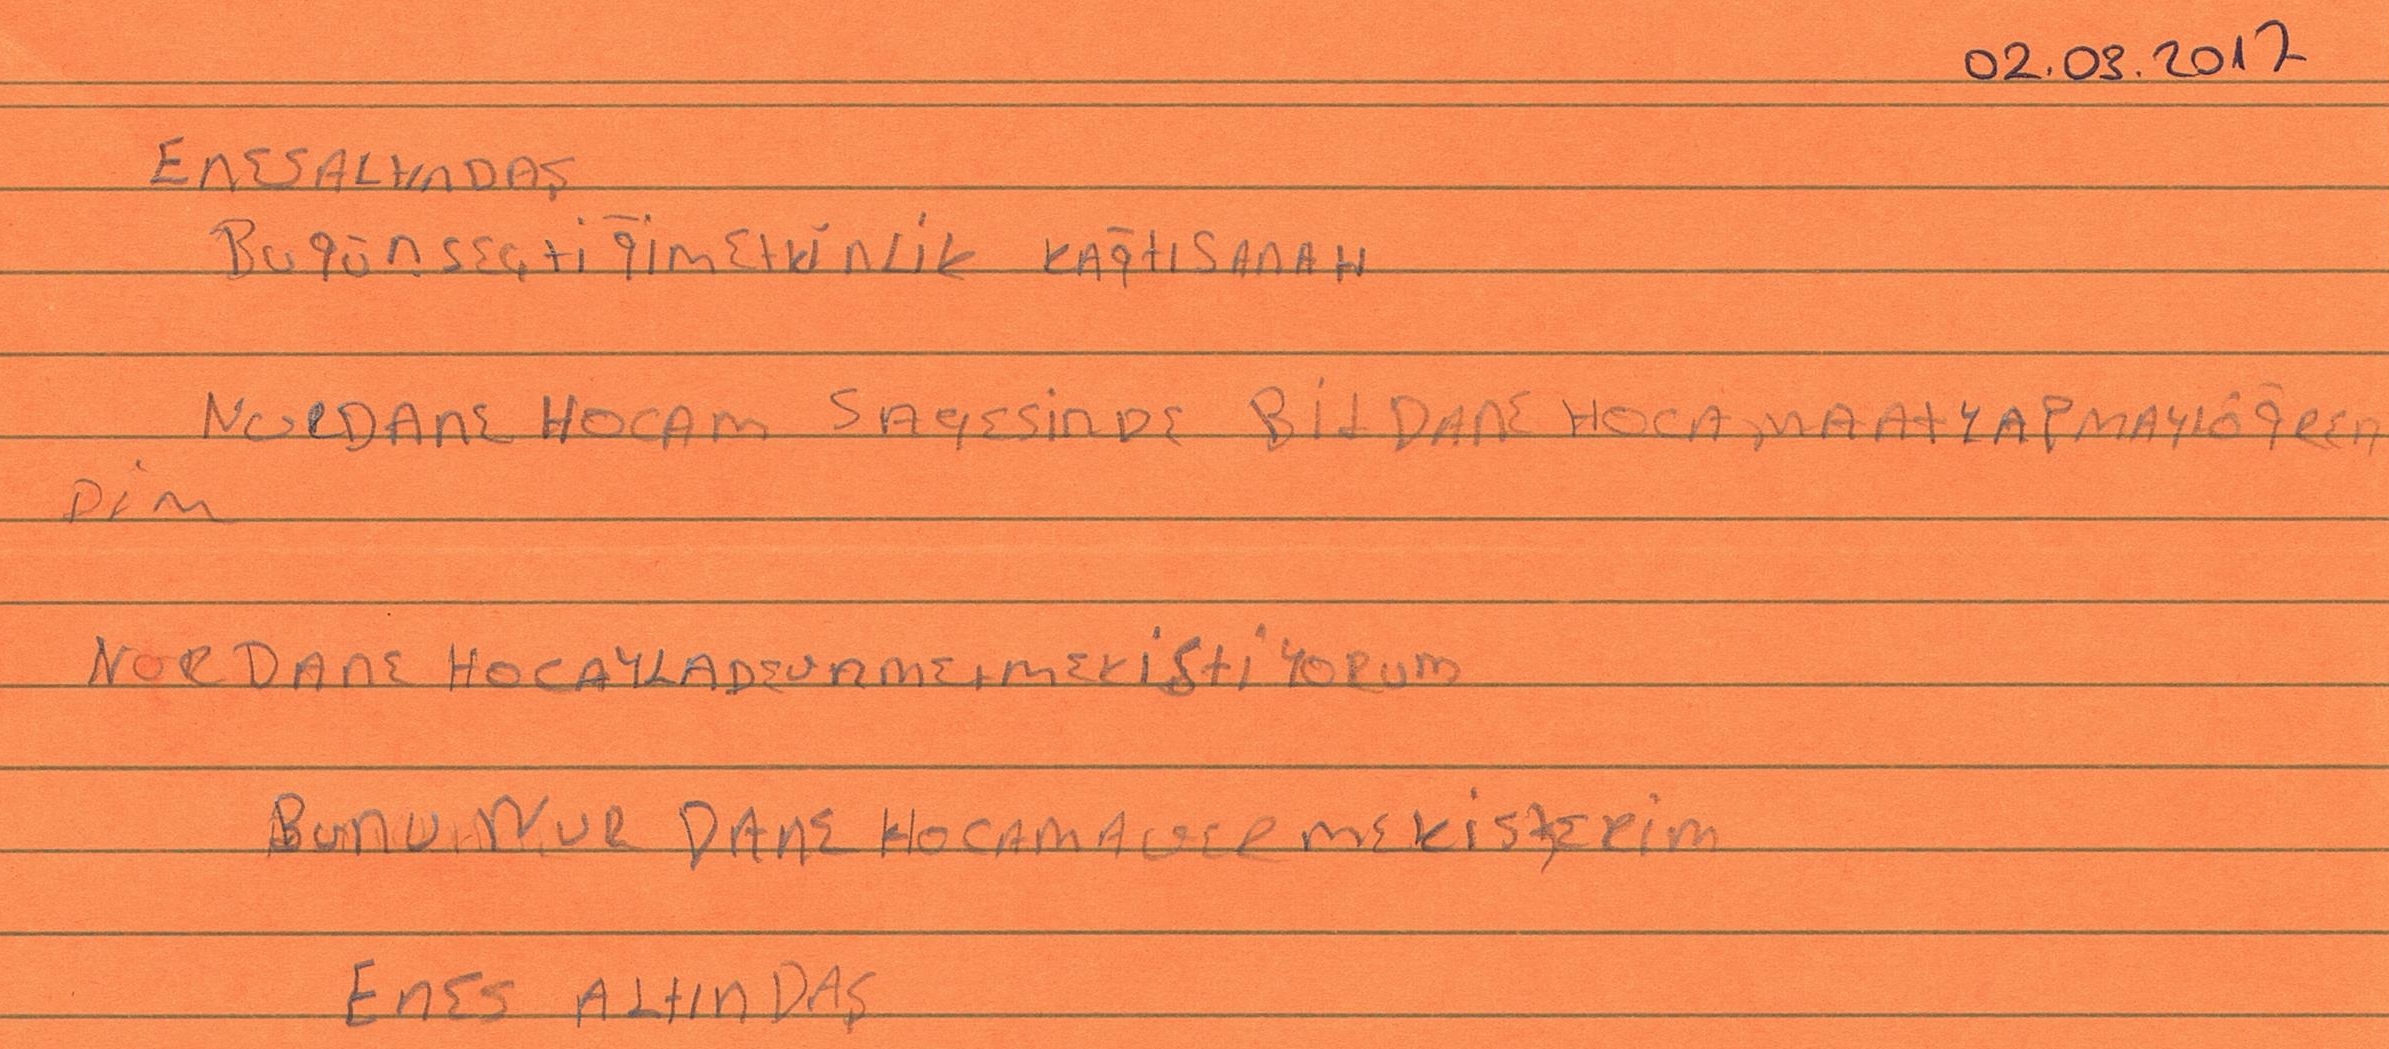 02.03.2017
ENESALtınDAŞ
BugünSEçtiğimEtkinlik KAğtıSANAtı
NURDANE HOCAM SAyESinDE BitDANE HOCAMNAAtYAPMAYIöğREn
Dim
NORDANE HOCAYLADEVAMEtmEKiStiYORUm
Bunu NUR DANE HOCAMAVERmEKiStERim
EnES ALtınDAŞ